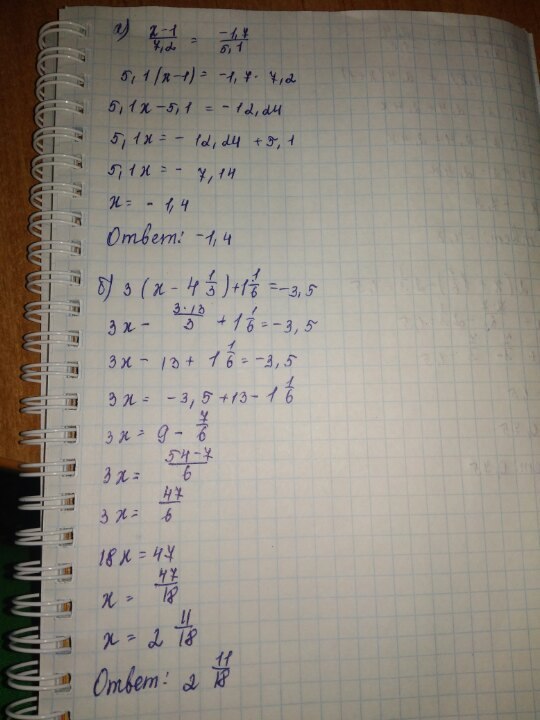 а) x-1/7,2 = -1,7/5,1
5,1(x-1) = -1,7 · 7,2
5,1x - 5,1 = -12,24
5,1x = - 12,24 + 5,1
5,1x = - 7,14
x = - 1,4
Ответ: -1,4
б) 3 (x - 4 1/3) + 1 1/6 = -3,5
3x - 3·13/3 + 1 1/6 = -3,5
3x - 13 + 1 1/6 = -3,5
3x = -3,5 + 13 - 1 1/6
3x = 9 - 7/6
3x = 54-7/6
3x = 47/6
18x = 47
x = 47/18
x = 2 11/18
Ответ: 2 11/18